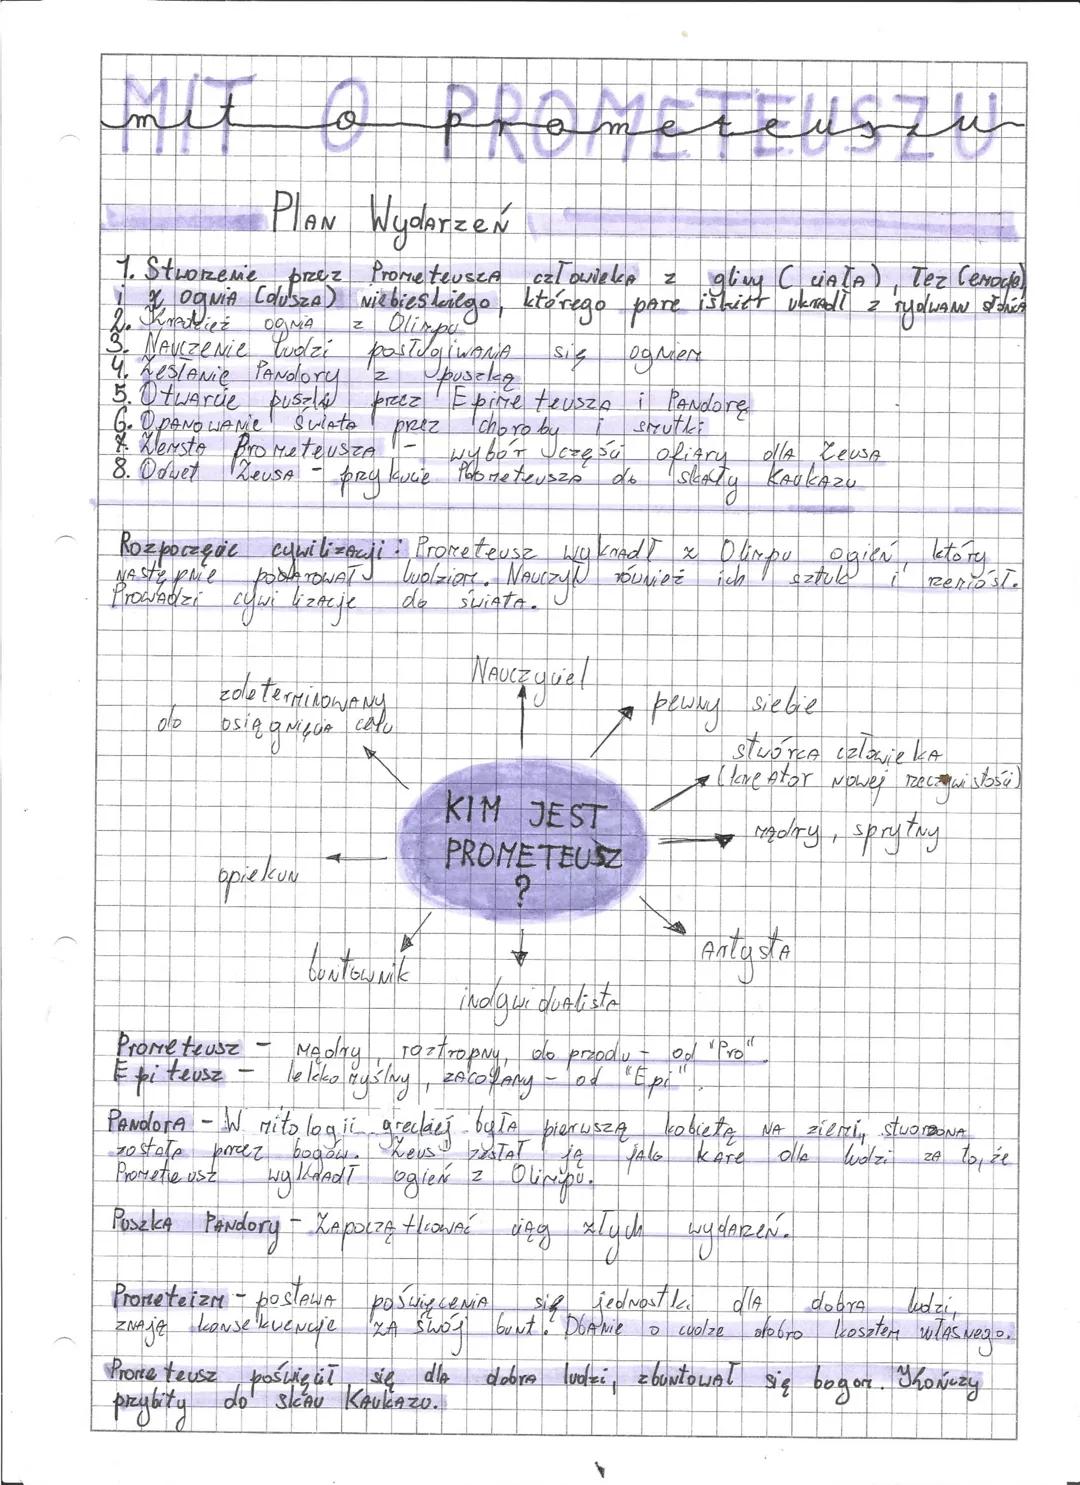 MIT O PROMETEUSZU
mit o prometeuszu
PLAN Wydarzeń
1. Stworzenie przez Prometeusza człowieka z gliny (ciała), łez (emocje)
i z ognia (dusza) niebieskiego, którego pare iskier ukradł z rydwanu słońca
2. Kradzież ognia z Olimpu
3. Nauczenie ludzi posługiwania się ogniem
4. Zesłanie Pandory z puszką
5. Otwarcie puszki przez Epimeteusza i Pandorę
6. Opanowanie świata przez choroby i smutki
7. Zemsta Prometeusza - wybór części ofiary dla Zeusa
8. Odwet Zeusa - przykucie Prometeusza do skały Kaukazu
Rozpoczęcie cywilizacji: Prometeusz wykradł z Olimpu ogień, który
następnie podarował ludziom. Nauczył również ich sztuk i rzemiósł.
Prowadzi cywilizacje do świata.
Nauczyciel
zdeterminowany
do osiągnięcia celu
pewny siebie
stwórca człowieka
(kreator nowej rzeczywistości)
KIM JEST
PROMETEUSZ
?
mądry, sprytny
opiekun
Artysta
buntownik
indywidualista
Prometeusz - mądry, roztropny, do przodu - od "Pro".
Epiteusz - lekkomyślny, zacofany - od "Epi".
Pandora - W mitologii greckiej była pierwszą kobietą na ziemi, stworzona
została przez bogów. Zeus zesłał ją jako kare dla ludzi za to, że
Prometeusz wykradł ogień z Olimpu.
Puszka Pandory - Zapoczątkować ciąg złych wydarzeń.
Prometeizm - postawa poświęcenia się jednostki dla dobra ludzi,
znają konsekwencje za swój bunt. Dbanie o cudze dobro kosztem własnego.
Prometeusz poświęcił się dla dobra ludzi, zbuntował się bogom. Skończy
przybity do skał Kaukazu.